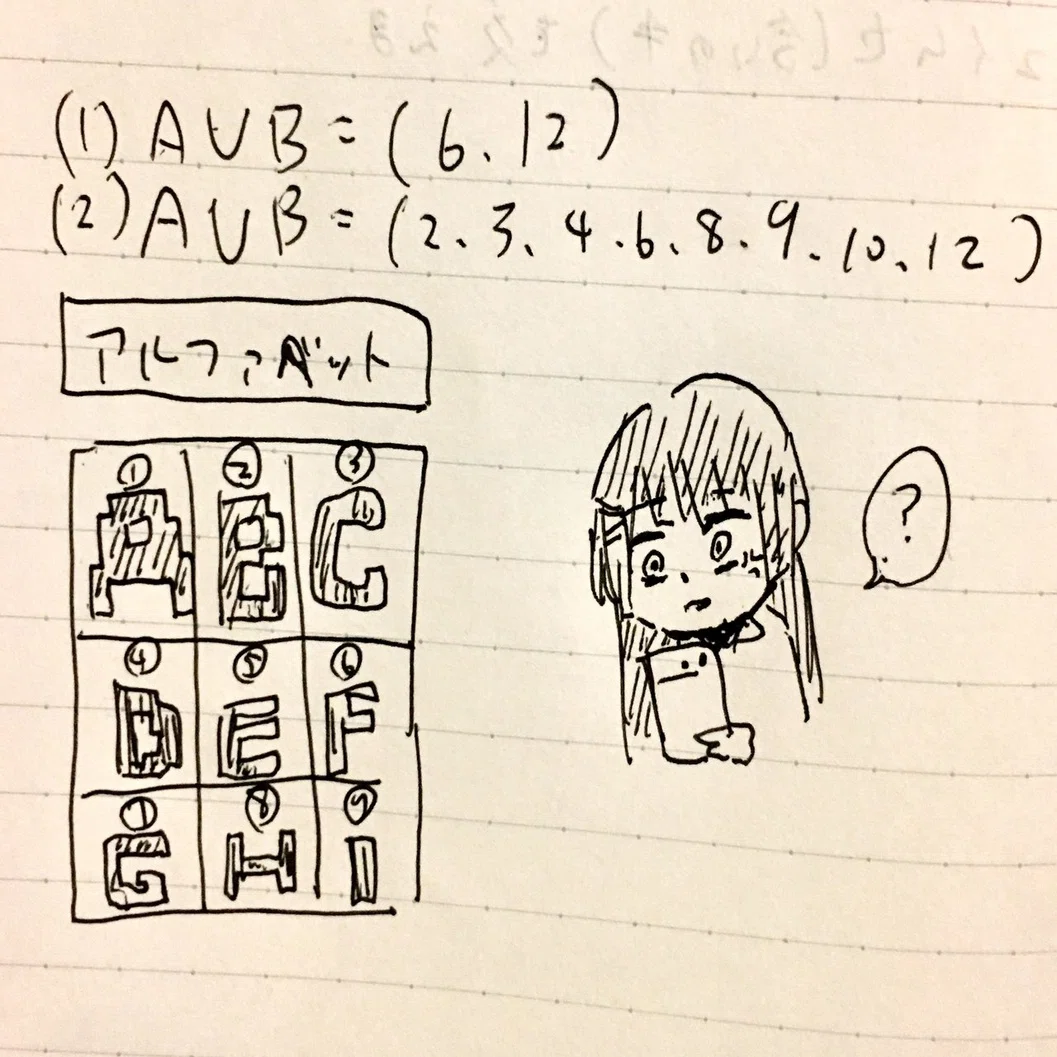 (1) A ∪ B = (6. 12)
(2) A ∪ B = (2. 3. 4. 6. 8. 9. 10. 12)
アルファベット
① ② ③
A B C
?
④ ⑤ ⑥
D E F
⑦ ⑧ ⑨
G H I